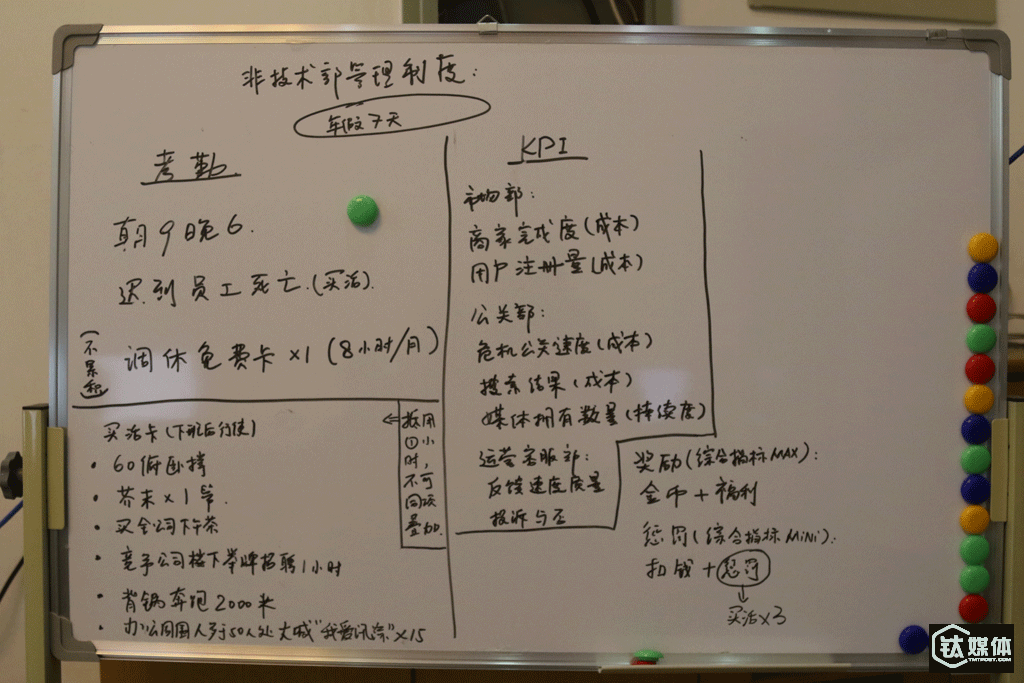 非技术部管理制度:
年假7天
考勤
朝9晚6.
迟到员工死亡.(买活).
(不累积)
调休免费卡×1(8小时/月)
买活卡(下班后行使)
60俯卧撑
芥末×1管.
买全公司下午茶
竞手公司楼下举牌招聘1小时
背锅奔跑2000米
办公周围人多于50人处大喊"我爱讯淙"×15
←抵用
①小
时,
不可
同项
叠加.
KPI
市场部:
商家完成度(成本)
用户注册量(成本)
公关部:
危机公关速度(成本)
搜索结果(成本)
媒体拥有数量(持续度)
运营客服部:
反馈速度质量
投诉与否
奖励(综合指标MAX):
金币+福利
惩罚(综合指标MiNi):
扣钱+惩罚
买活×3
钛媒体
TMTPOST.COM